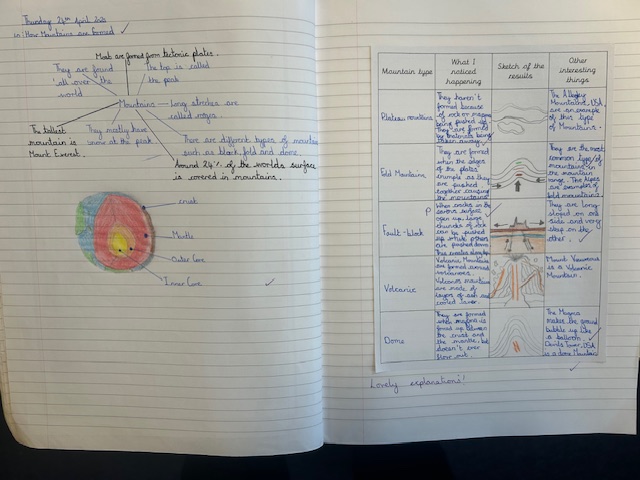 Thursday 2 April 2020
How Mountains are formed
Most are formed from tectonic plates.
They are found
all over the
world
The top is called
the peak
Mountains
Long stretches are
called ranges
The tallest
mountain is
Mount Everest.
They mostly have
snow at the peak
There are different types of mountains
such as block, fold and dome.
Around 24% of the worlds surface
is covered in mountains.
crust
Mantle
Outer Core
Inner Core
Mountain type
What I
noticed
happening
Sketch of the
results
Other
interesting
things
Plateau mountains
They haven't
formed because
of rock or magma
being pushed up
They are formed
by materials being
taken away
The Allegheny
Mountains, USA
are an example
of this type
of Mountains.
Fold Mountains
They are formed
when the edges
of the plates
crumple as they
are pushed
together causing
the mountains
They are the most
common type of
mountains in
the mountain
range. The Alps
are examples of
fold mountains
Fault-block
P
When cracks in the
surface
open up, large
chunks of rock
can be pushed
up while others
are pushed down
They are long
sloped on one
side and very
steep on the
other.
Volcanic
Volcanic Mountains
are formed around
volcanoes.
Volcanic mountains
are made of
layers of ash and
cooled lava.
Mount Vesuvius
is a Volcanic
Mountain.
Dome
They are formed
when magma is
forced up between
the crust and
the mantle, but
doesn't ever
flow out.
The Magma
makes the ground
bubble up like
a balloon.
Devils Tower, USA
is a dome Mountain
Lovely explanations!